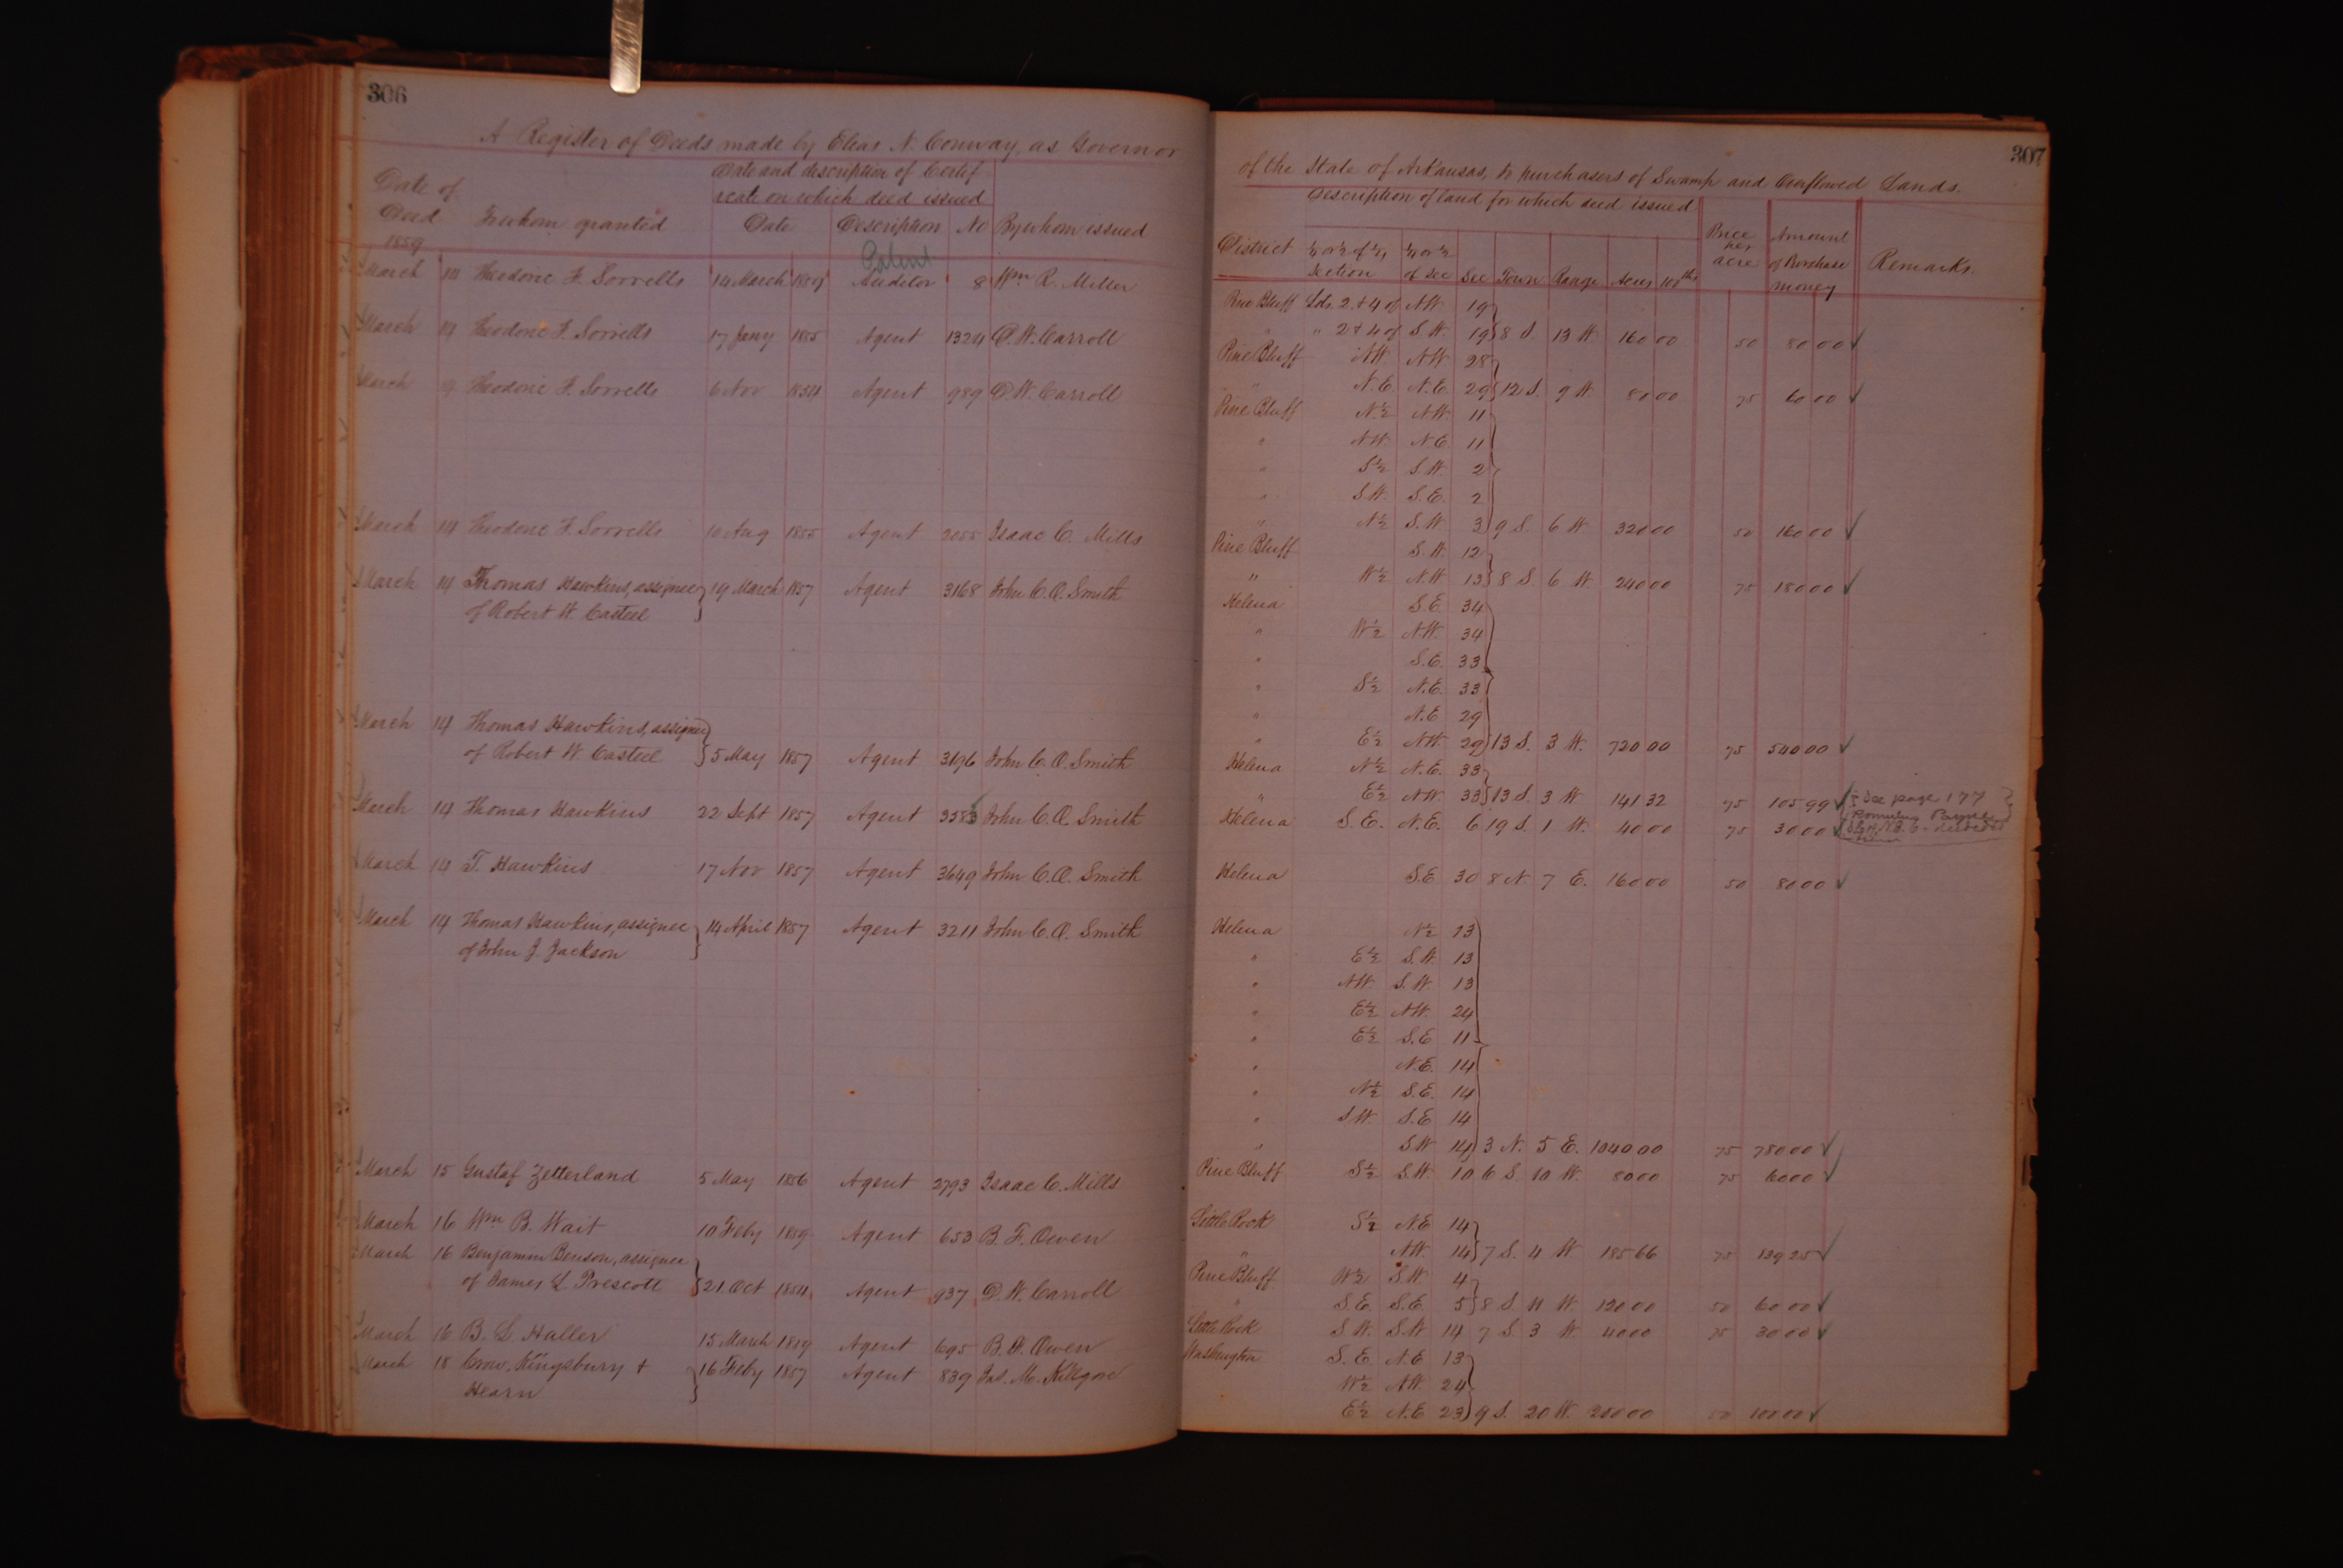 306
A Register of Deeds made by Elias N. Conway, as Governor
Date of Deed 1859
To whom granted
Date and description of Certificate on which deed issued
Date Description No By whom issued
Patent
March 14 Theodoric F. Sorrells 14 March 1859 Auditor 8 Wm R. Miller
March 14 Theodoric F. Sorrells 17 Jany 1855 Agent 1324 D. W. Carroll
March 9 Theodoric F. Sorrells 6 Nov 1854 Agent 989 D. W. Carroll
March 14 Theodoric F. Sorrells 10 Aug 1855 Agent 2055 Isaac C. Mills
March 14 Thomas Hawkins, assignee 19 March 1857 Agent 3168 John C. O. Smith
of Robert W. Casteel
March 14 Thomas Hawkins, assignee
of Robert W. Casteel 5 May 1857 Agent 3196 John C. O. Smith
March 14 Thomas Hawkins 22 Sept 1857 Agent 3383 John C. O. Smith
March 14 T. Hawkins 17 Nov 1857 Agent 3649 John C. O. Smith
March 14 Thomas Hawkins, assignee 14 April 1857 Agent 3211 John C. O. Smith
of John J. Jackson
March 15 Gustaf Zetterland 5 May 1856 Agent 2793 Isaac C. Mills
March 16 Wm B. Wait 10 Feby 1859 Agent 653 B. F. Owen
March 16 Benjamin Benson, assignee
of James L. Prescott 21 Oct 1854 Agent 937 D. W. Carroll
March 16 B. L. Haller 15 March 1859 Agent 695 B. F. Owen
March 18 Crow, Kingsbury + 16 Feby 1857 Agent 839 Jas. M. Kilgore
Hearn
307
of the State of Arkansas, to purchasers of Swamp and Overflowed Lands.
Description of land for which deed issued
District ¼ or ½ of ¼ Section ¼ or ½ of Sec Sec Town Range Acres 100ths Price per acre Amount of Purchase money Remarks.
Pine Bluff Lds. 2 + 4 of N.W. 19
" " 2 + 4 of S.W. 19 8 S. 13 W. 160 00 50 80 00
Pine Bluff N.W. N.W. 28
" N.E. N.E. 29 12 S. 9 W. 80 00 75 60 00
Pine Bluff N.½ N.W. 11
" N.W. N.E. 11
" S½ S.W. 2
" S.W. S.E. 2
" N½ S.W. 3 9 S. 6 W. 320 00 50 160 00
Pine Bluff S.W. 12
" W½ N.W. 13 8 S. 6 W. 240 00 75 180 00
Helena S.E. 34
" W½ N.W. 34
" S.E. 33
" S½ N.E. 33
" N.E. 29
" E½ N.W. 29 13 S. 3 W. 720 00 75 540 00
Helena N½ N.E. 33
" E½ N.W. 33 13 S. 3 W. 141 32 75 105 99 See page 177
Romulus Payne
Helena S.E. N.E. 6 19 S. 1 W. 40 00 75 30 00
Helena S.E. 30 8 N. 7 E. 160 00 50 80 00
Helena N½ 13
" E½ S.W. 13
" N.W. S.W. 13
" E½ N.W. 24
" E½ S.E. 11
" N.E. 14
" N½ S.E. 14
" S.W. S.E. 14
" S.W. 14 3 N. 5 E. 1040 00 75 780 00
Pine Bluff S½ S.W. 10 6 S. 10 W. 80 00 75 60 00
Little Rock S½ N.E. 14
" N.W. 14 7 S. 4 W. 185 66 75 139 25
Pine Bluff W½ S.W. 4
" S.E. S.E. 5 8 S. 11 W. 120 00 50 60 00
Little Rock S.W. S.W. 14 7 S. 3 W. 40 00 75 30 00
Washington S.E. N.E. 13
W½ N.W. 24
E½ N.E. 23 9 S. 20 W. 200 00 50 100 00